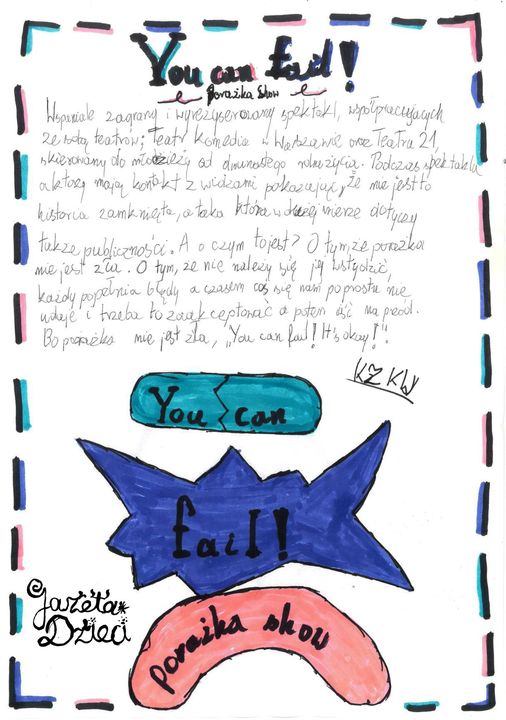 You can fail!
Porażka Show
Wspaniale zagrany i wyreżyserowany spektakl, współpracujących
ze sobą teatrów; Teatr Komedia w Warszawie oraz Teatru 21,
skierowany do młodzieży od dwunastego roku życia. Podczas spektaklu
aktorzy mają kontakt z widzami pokazując, że nie jest to
historia zamknięta, a taka która w dużej mierze dotyczy
także publiczności. A o czym to jest? O tym, że porażka
nie jest zła. O tym, że nie należy się jej wstydzić,
każdy popełnia błędy a czasem coś się nam po prostu nie
udaje i trzeba to zaakceptować a potem iść na przód.
Bo porażka nie jest zła, „You can fail! It's okay!".
KŻ KW
You can
fail!
porażka show
Gazeta
Dzieci